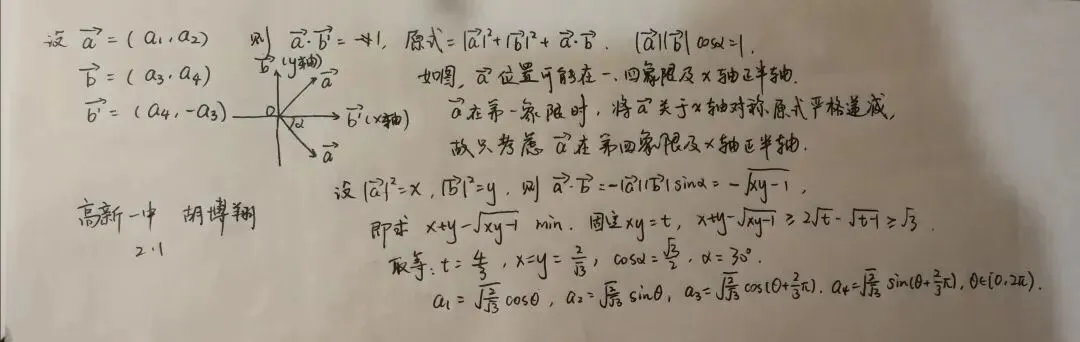 设 a⃗=(a₁,a₂) 则 a⃗·b⃗'=1, 原式=|a⃗|²+|b⃗|²+a⃗·b⃗. |a⃗||b⃗|cosα=1.
b⃗=(a₃,a₄)
b⃗'=(a₄,-a₃)
b⃗(y轴)
a⃗
O
α
b⃗'(x轴)
a⃗
如图, a⃗位置可能在一、四象限及x轴正半轴.
a⃗在第一象限时, 将a⃗关于x轴对称, 原式严格递减,
故只考虑 a⃗在第四象限及x轴正半轴.
设|a⃗|²=x, |b⃗|²=y, 则 a⃗·b⃗=-|a⃗||b⃗|sinα=-√(xy-1),
即求 x+y-√(xy-1) min. 固定xy=t, x+y-√(xy-1) ≥ 2√t-√(t-1) ≥ √3.
取等: t=4/3, x=y=2/√3, cosα=√3/2, α=30°.
a₁=√(2/√3)cosθ, a₂=√(2/√3)sinθ, a₃=√(2/√3)cos(θ+2/3π), a₄=√(2/√3)sin(θ+2/3π), θ∈[0,2π).
高新一中 胡博翔
2.1